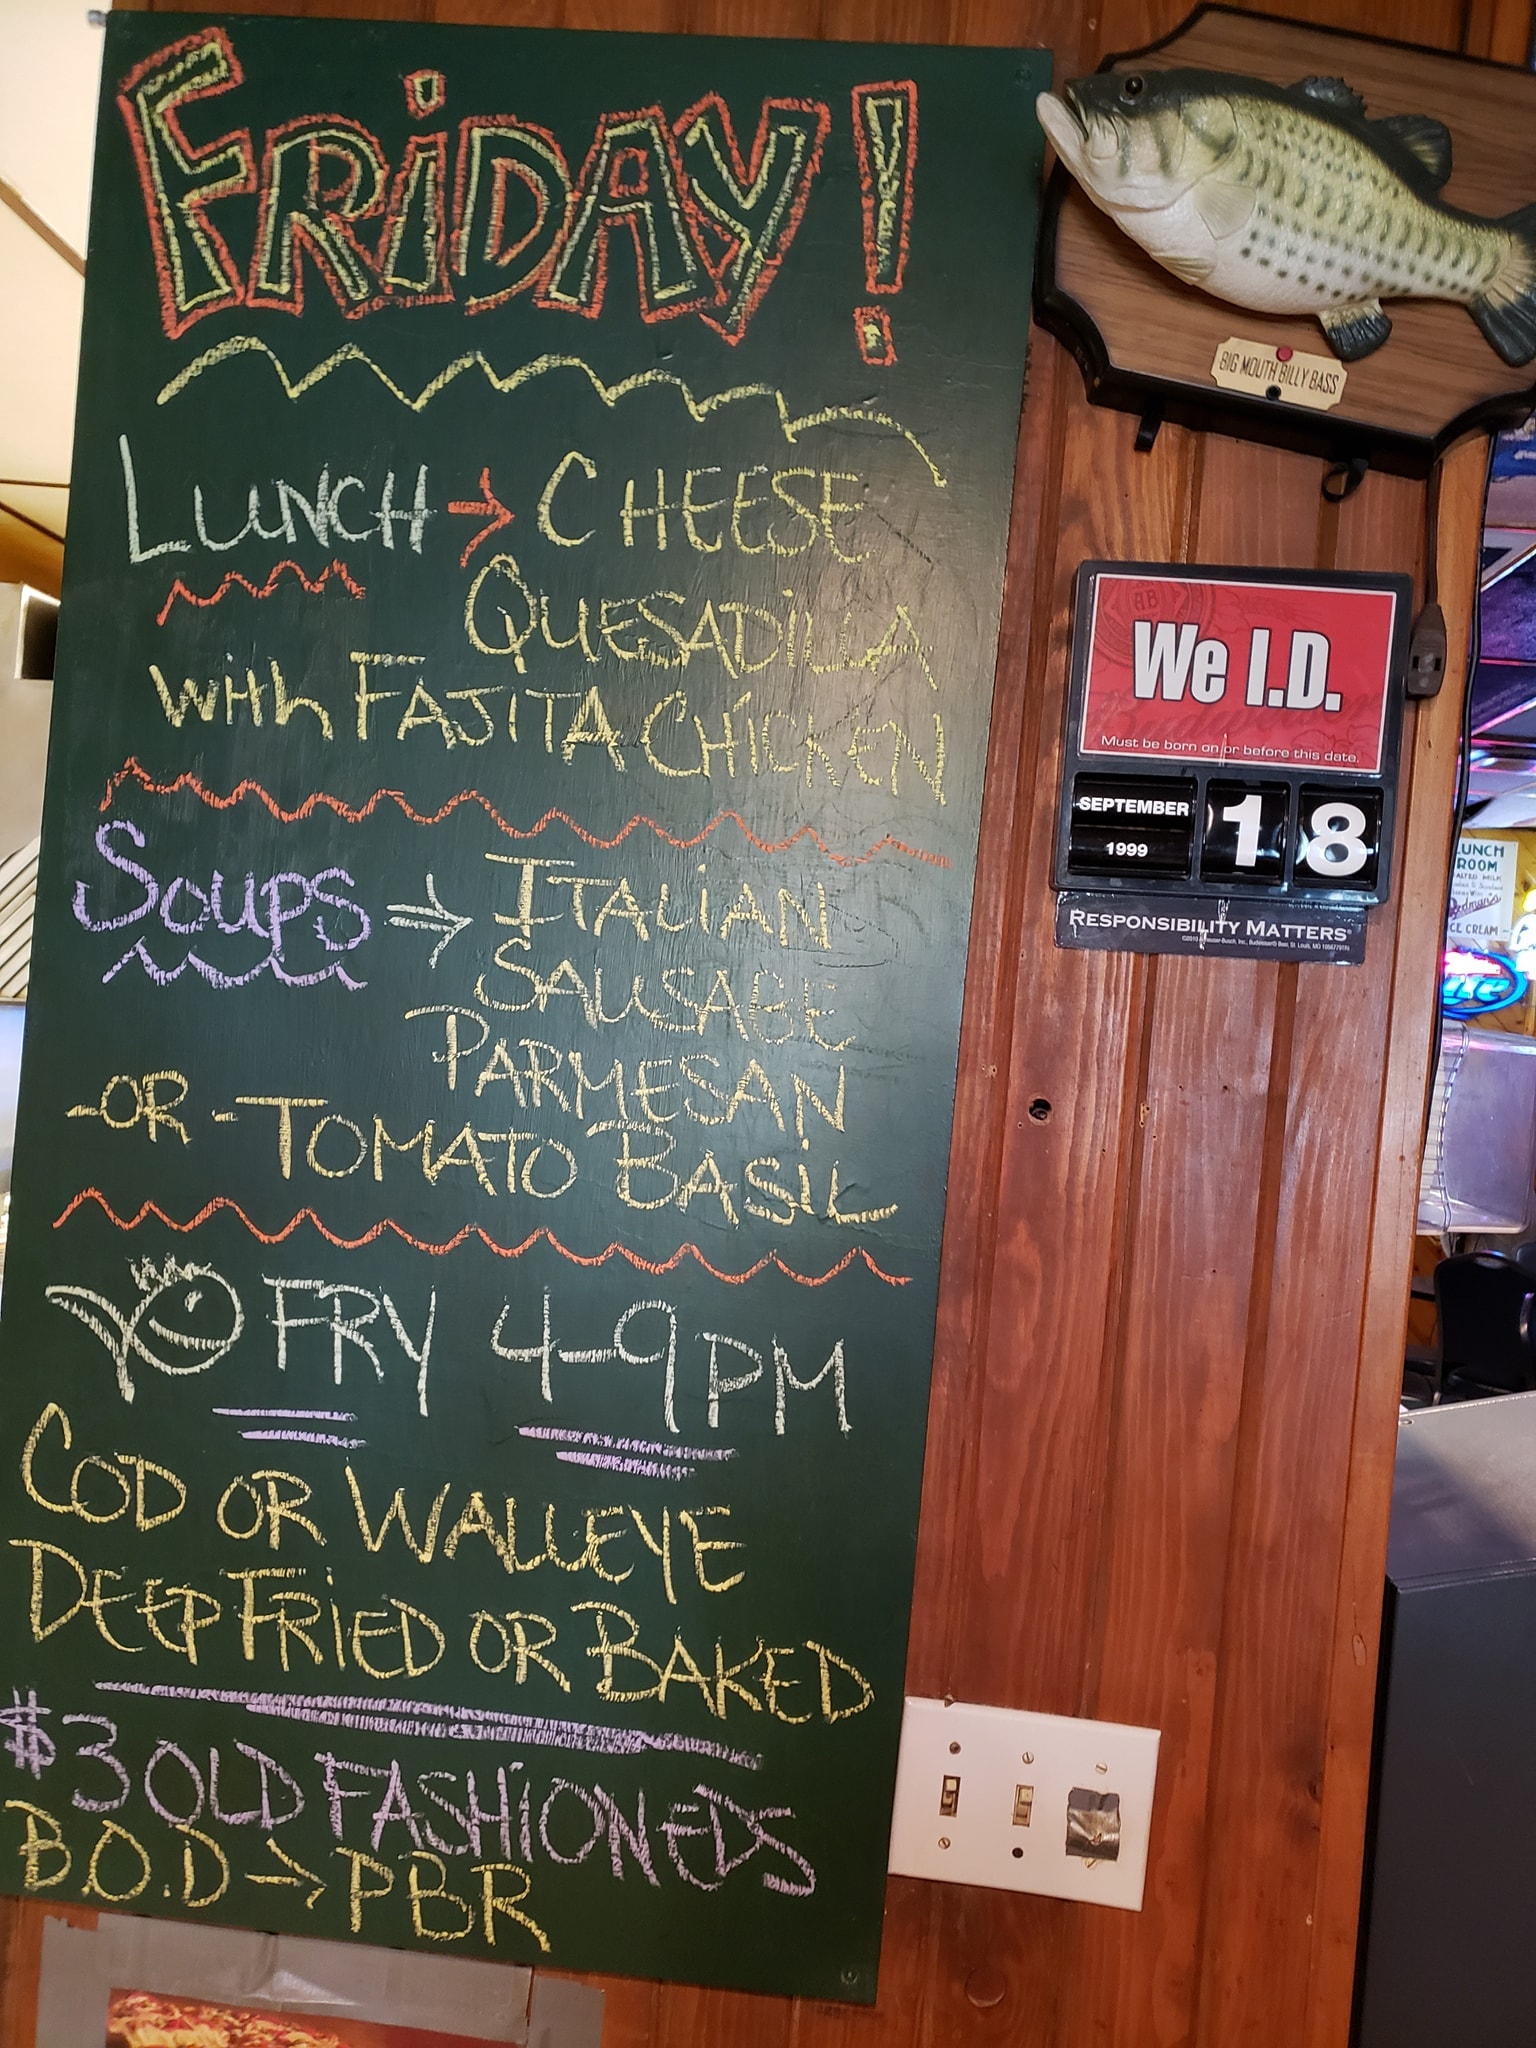 FRiDAY!
LUNCH → CHEESE
QUESADiLLA
with FAJITA CHiCKEN
SOUPS → ITALiAN
SAUSAGE
PARMESAN
-OR- TOMATO BASiL
FRY 4-9PM
COD OR WALLEYE
DEEP FRiED OR BAKED
$3 OLD FASHiONEDS
B.O.D → PBR
BIG MOUTH BILLY BASS
AB
We I.D.
Budweiser
Must be born on or before this date.
SEPTEMBER 18
1999
RESPONSIBILITY MATTERS®
LUNCH
ROOM
MALTED MILK
ICE CREAM
Lite